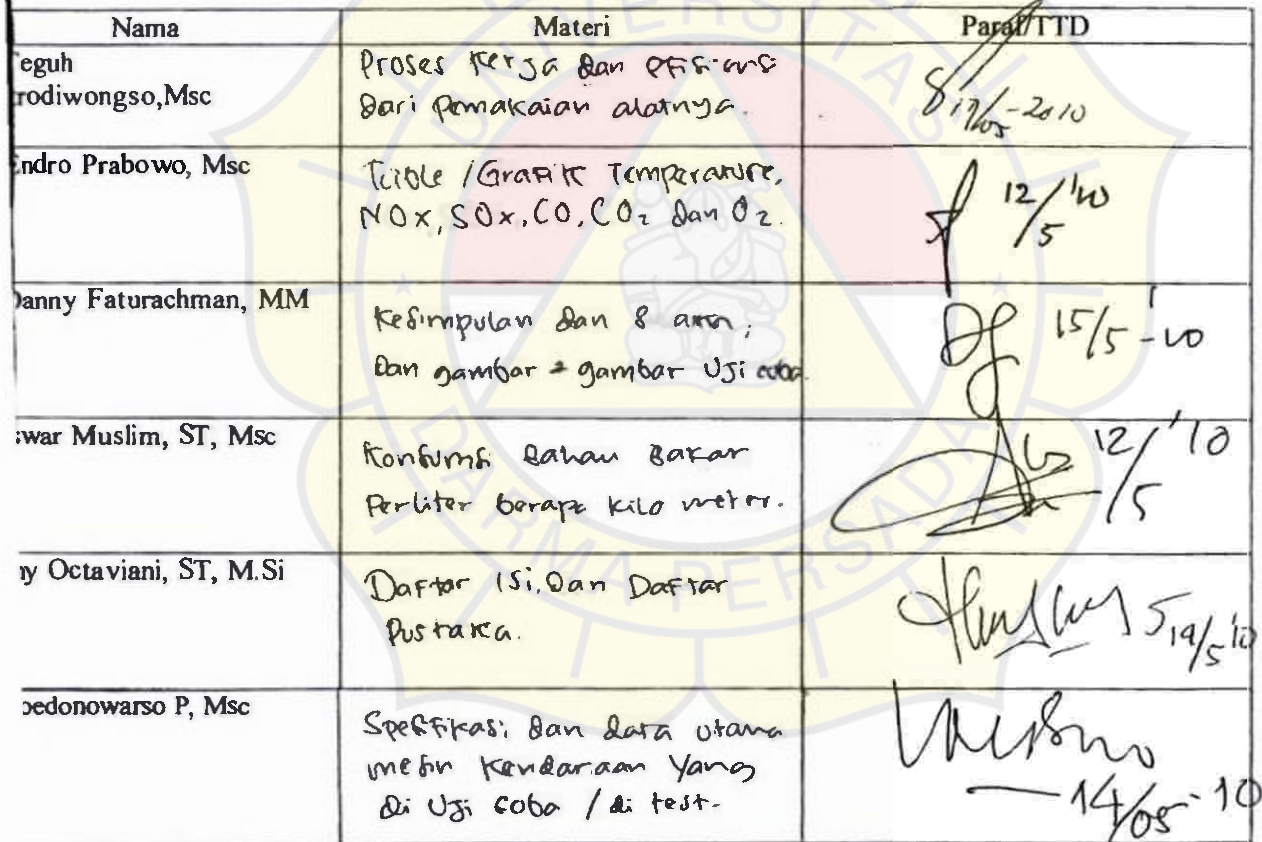 Nama Materi Paraf/TTD
eguh
rodiwongso,Msc
Proses Kerja dan efisiensi
dari pemakaian alatnya.
19/05-2010
ndro Prabowo, Msc
Table / Grafik Temperature,
NOx, SOx, CO, CO2 dan O2.
12/5 '10
anny Faturachman, MM
Kesimpulan dan
Dan gambar - gambar Uji coba.
15/5 - '10
swar Muslim, ST, Msc
Konsumsi Bahan Bakar
Perliter berapa kilo meter.
12/5 '10
ny Octaviani, ST, M.Si
Daftar Isi, Dan Daftar
Pustaka.
19/5 '10
oedonowarso P, Msc
Spesifikasi dan data utama
mesin Kendaraan Yang
di Uji coba / di test.
14/05 - 10
UNIVERSITAS
DARMA PERSADA